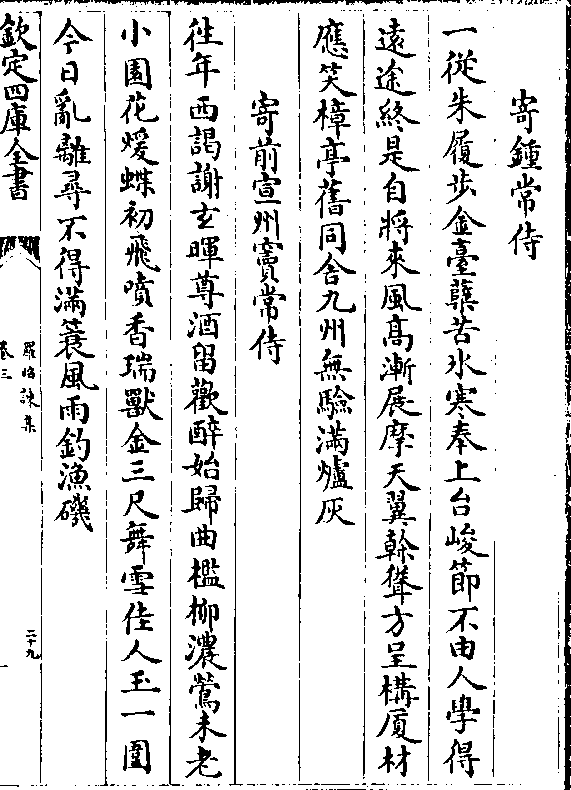 寄鍾常侍
一從朱履歩金臺蘖苦氷寒奉上台峻節不由人學得
遠途終是自將来風髙漸展摩天翼幹聳方呈構厦材
應笑樟亭舊同舎九州無驗滿爐灰
寄前宣州竇常侍
徃年西謁謝玄暉尊酒留歡醉始歸曲檻柳濃鶯未老
小園花煖蝶初飛噴香瑞獸金三尺舞雪佳人玉一圍
今日亂離尋不得滿蓑風雨釣漁磯
欽定四庫全書
羅昭諫集
卷三
二十九